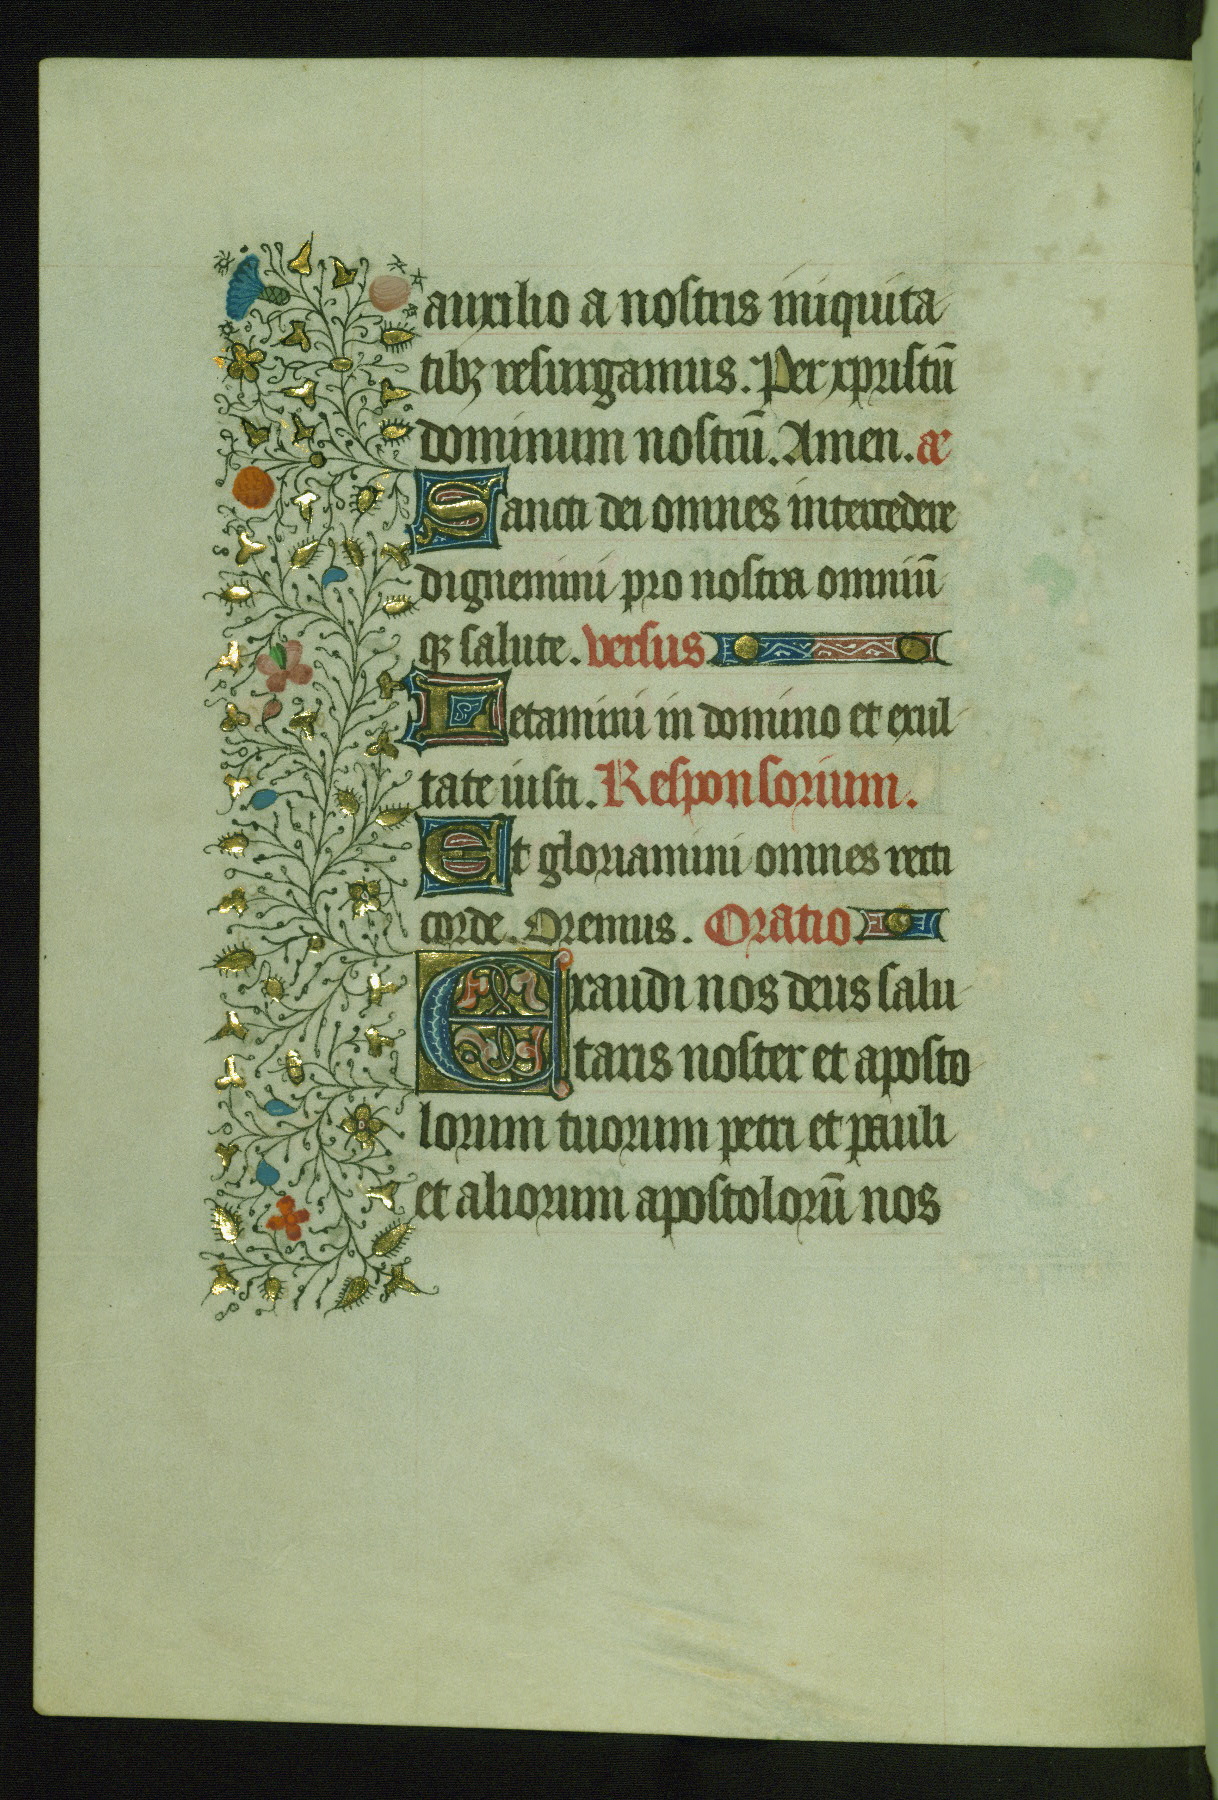 auxilio a nostris iniquita
tibꝫ resurgamus. Per xpristū
dominum nostrū. Amen. ae
Sancti dei omnes intercedere
dignemini pro nostra omniū
qꝫ salute. versus
Letamini in domino et exul
tate iusti. Responsorium.
Et gloriamini omnes recti
corde. Oremus. Oratio
Exaudi nos deus salu
taris noster et aposto
lorum tuorum petri et pauli
et aliorum apostolorū nos